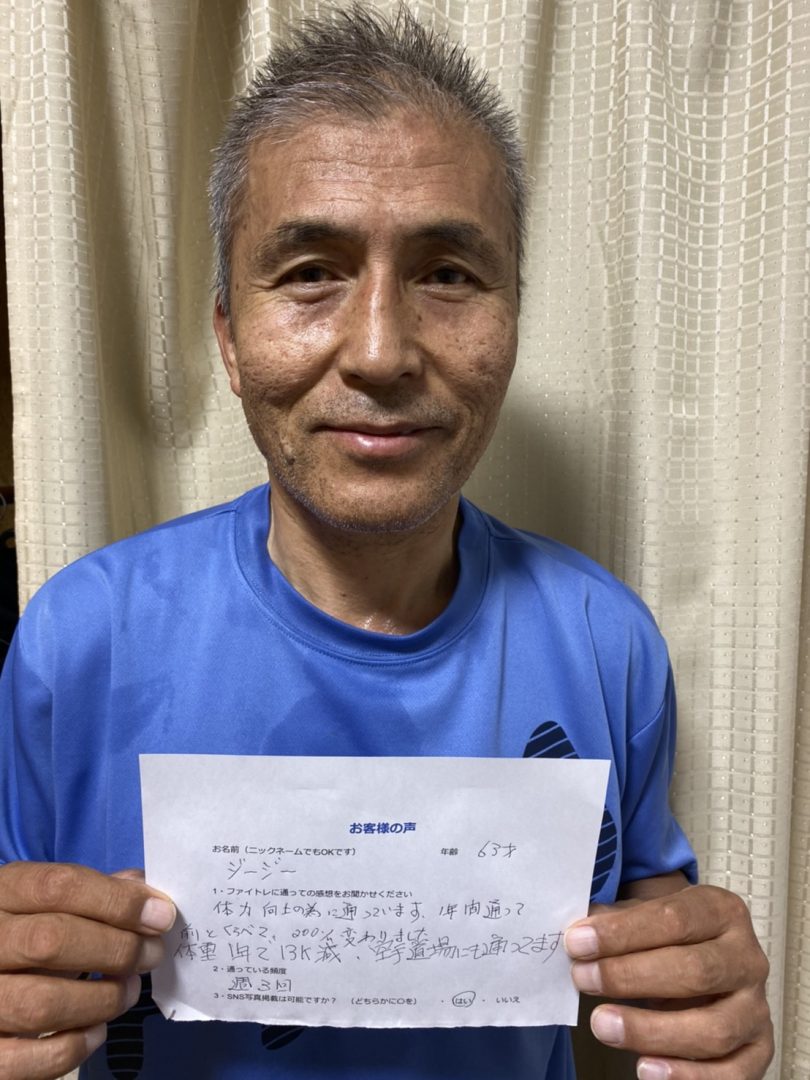 お客様の声
お名前(ニックネームでもOKです) 年齢 63才
ジージー
1・ファイトレに通っての感想をお聞かせください
体力向上の為に通っています、1年間通って
前とくらべて、200%変わりました
体重1年で13K減、空手道場にも通ってます
2・通っている頻度
週3回
3・SNS写真掲載は可能ですか? (どちらかに○を) ・はい・ いいえ